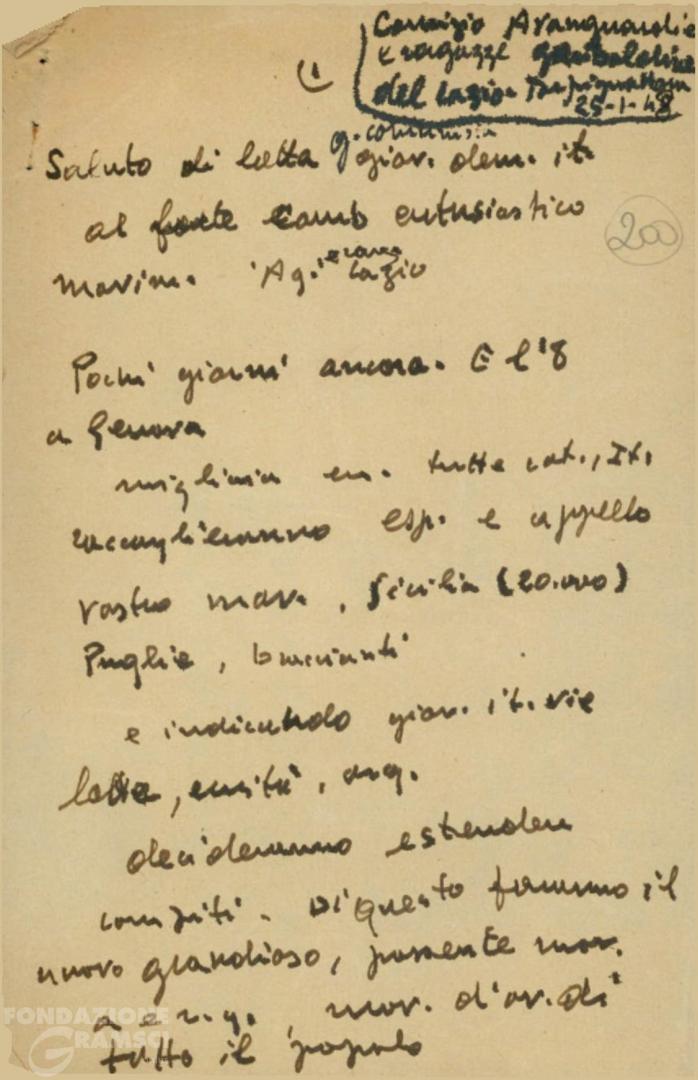 Comizio Avanguardie
e ragazze garibaldine
del Lazio. Torpignattara
25-1-48
(1
g. comunista
Saluto di lotta giov. dem. it.
al forte comb entusiastico
200
movim. "Ag." e ragg. Lazio
Pochi giorni ancora. E l'8
a Genova
migliaia en. tutte cat., It.
raccoglieranno esp. e appello
vostro mov., Sicilia (20.000)
Puglie, braccianti
e indicando giov. it. vie
lotta, unità, org.
decideranno estendere
compiti. Di questo faranno il
nuovo grandioso, possente mov.
a e r.g., mov. d'av. di
tutto il popolo
FONDAZIONE
GRAMSCI